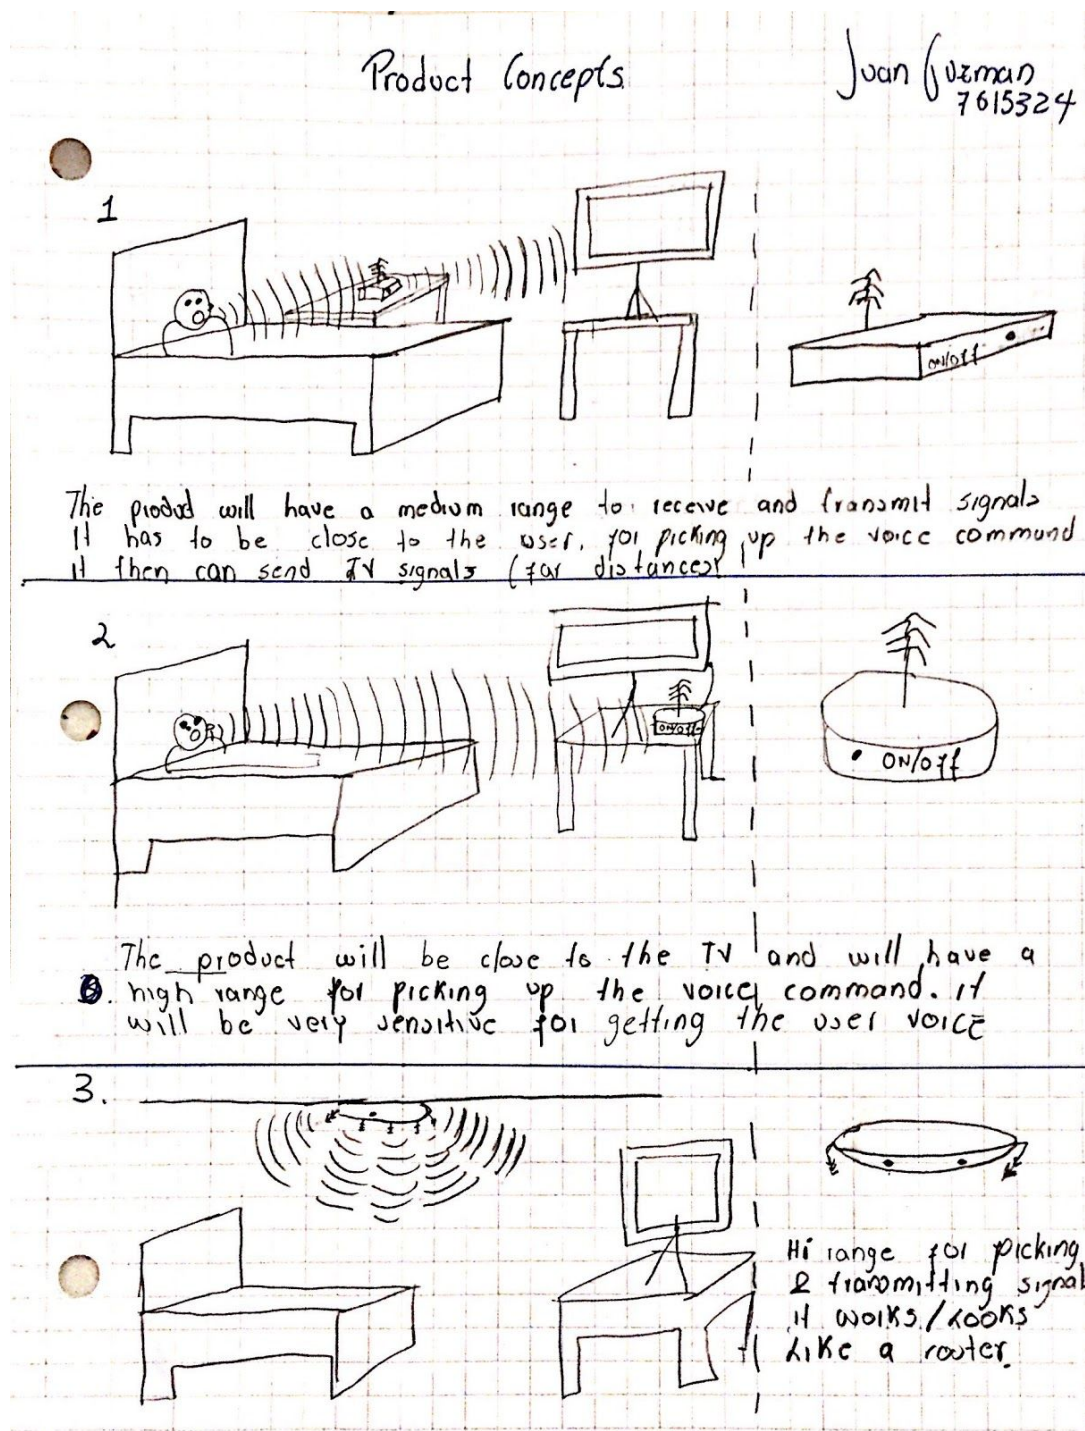 Product Concepts
Juan Guzman
7615324
1
ON/Off
The product will have a medium range to receive and transmit signals
It has to be close to the user, for picking up the voice command
it then can send TV signals (far distances)
2
ON/Off
ON/Off
The product will be close to the TV and will have a
high range for picking up the voice command. it
will be very sensitive for getting the user voice
3.
Hi range for picking
& transmitting signal
it works/Looks
Like a router.